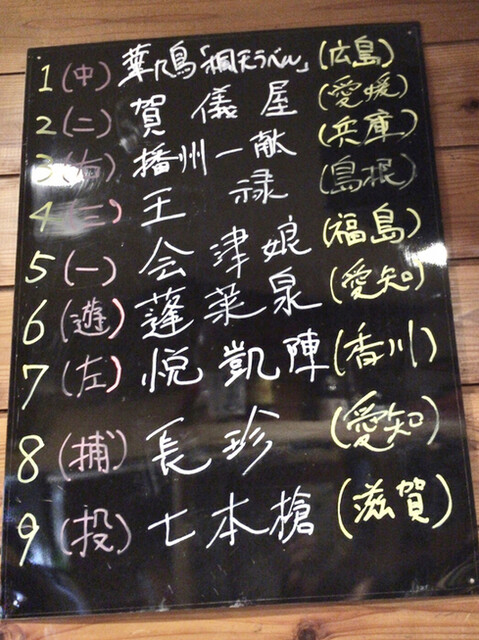 1 (中) 華鳩「桐天ラベル」 (広島)
2 (二) 賀儀屋 (愛媛)
3 (右) 播州一献 (兵庫)
4 (三) 王祿 (島根)
5 (一) 会津娘 (福島)
6 (遊) 蓬莱泉 (愛知)
7 (左) 悦凱陣 (香川)
8 (捕) 長珍 (愛知)
9 (投) 七本槍 (滋賀)